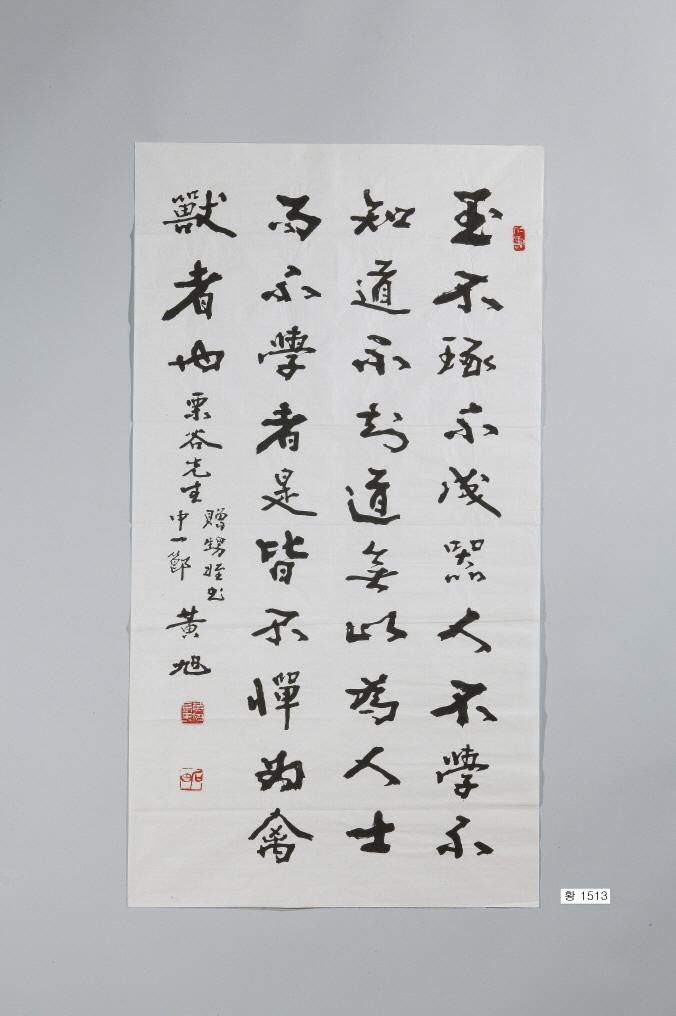 玉不琢不成器人不學不
知道不知道無以爲人士
而不學者是皆不憚爲禽
獸者也
栗谷先生
贈甥姪書
中一節
黃旭
황 1513